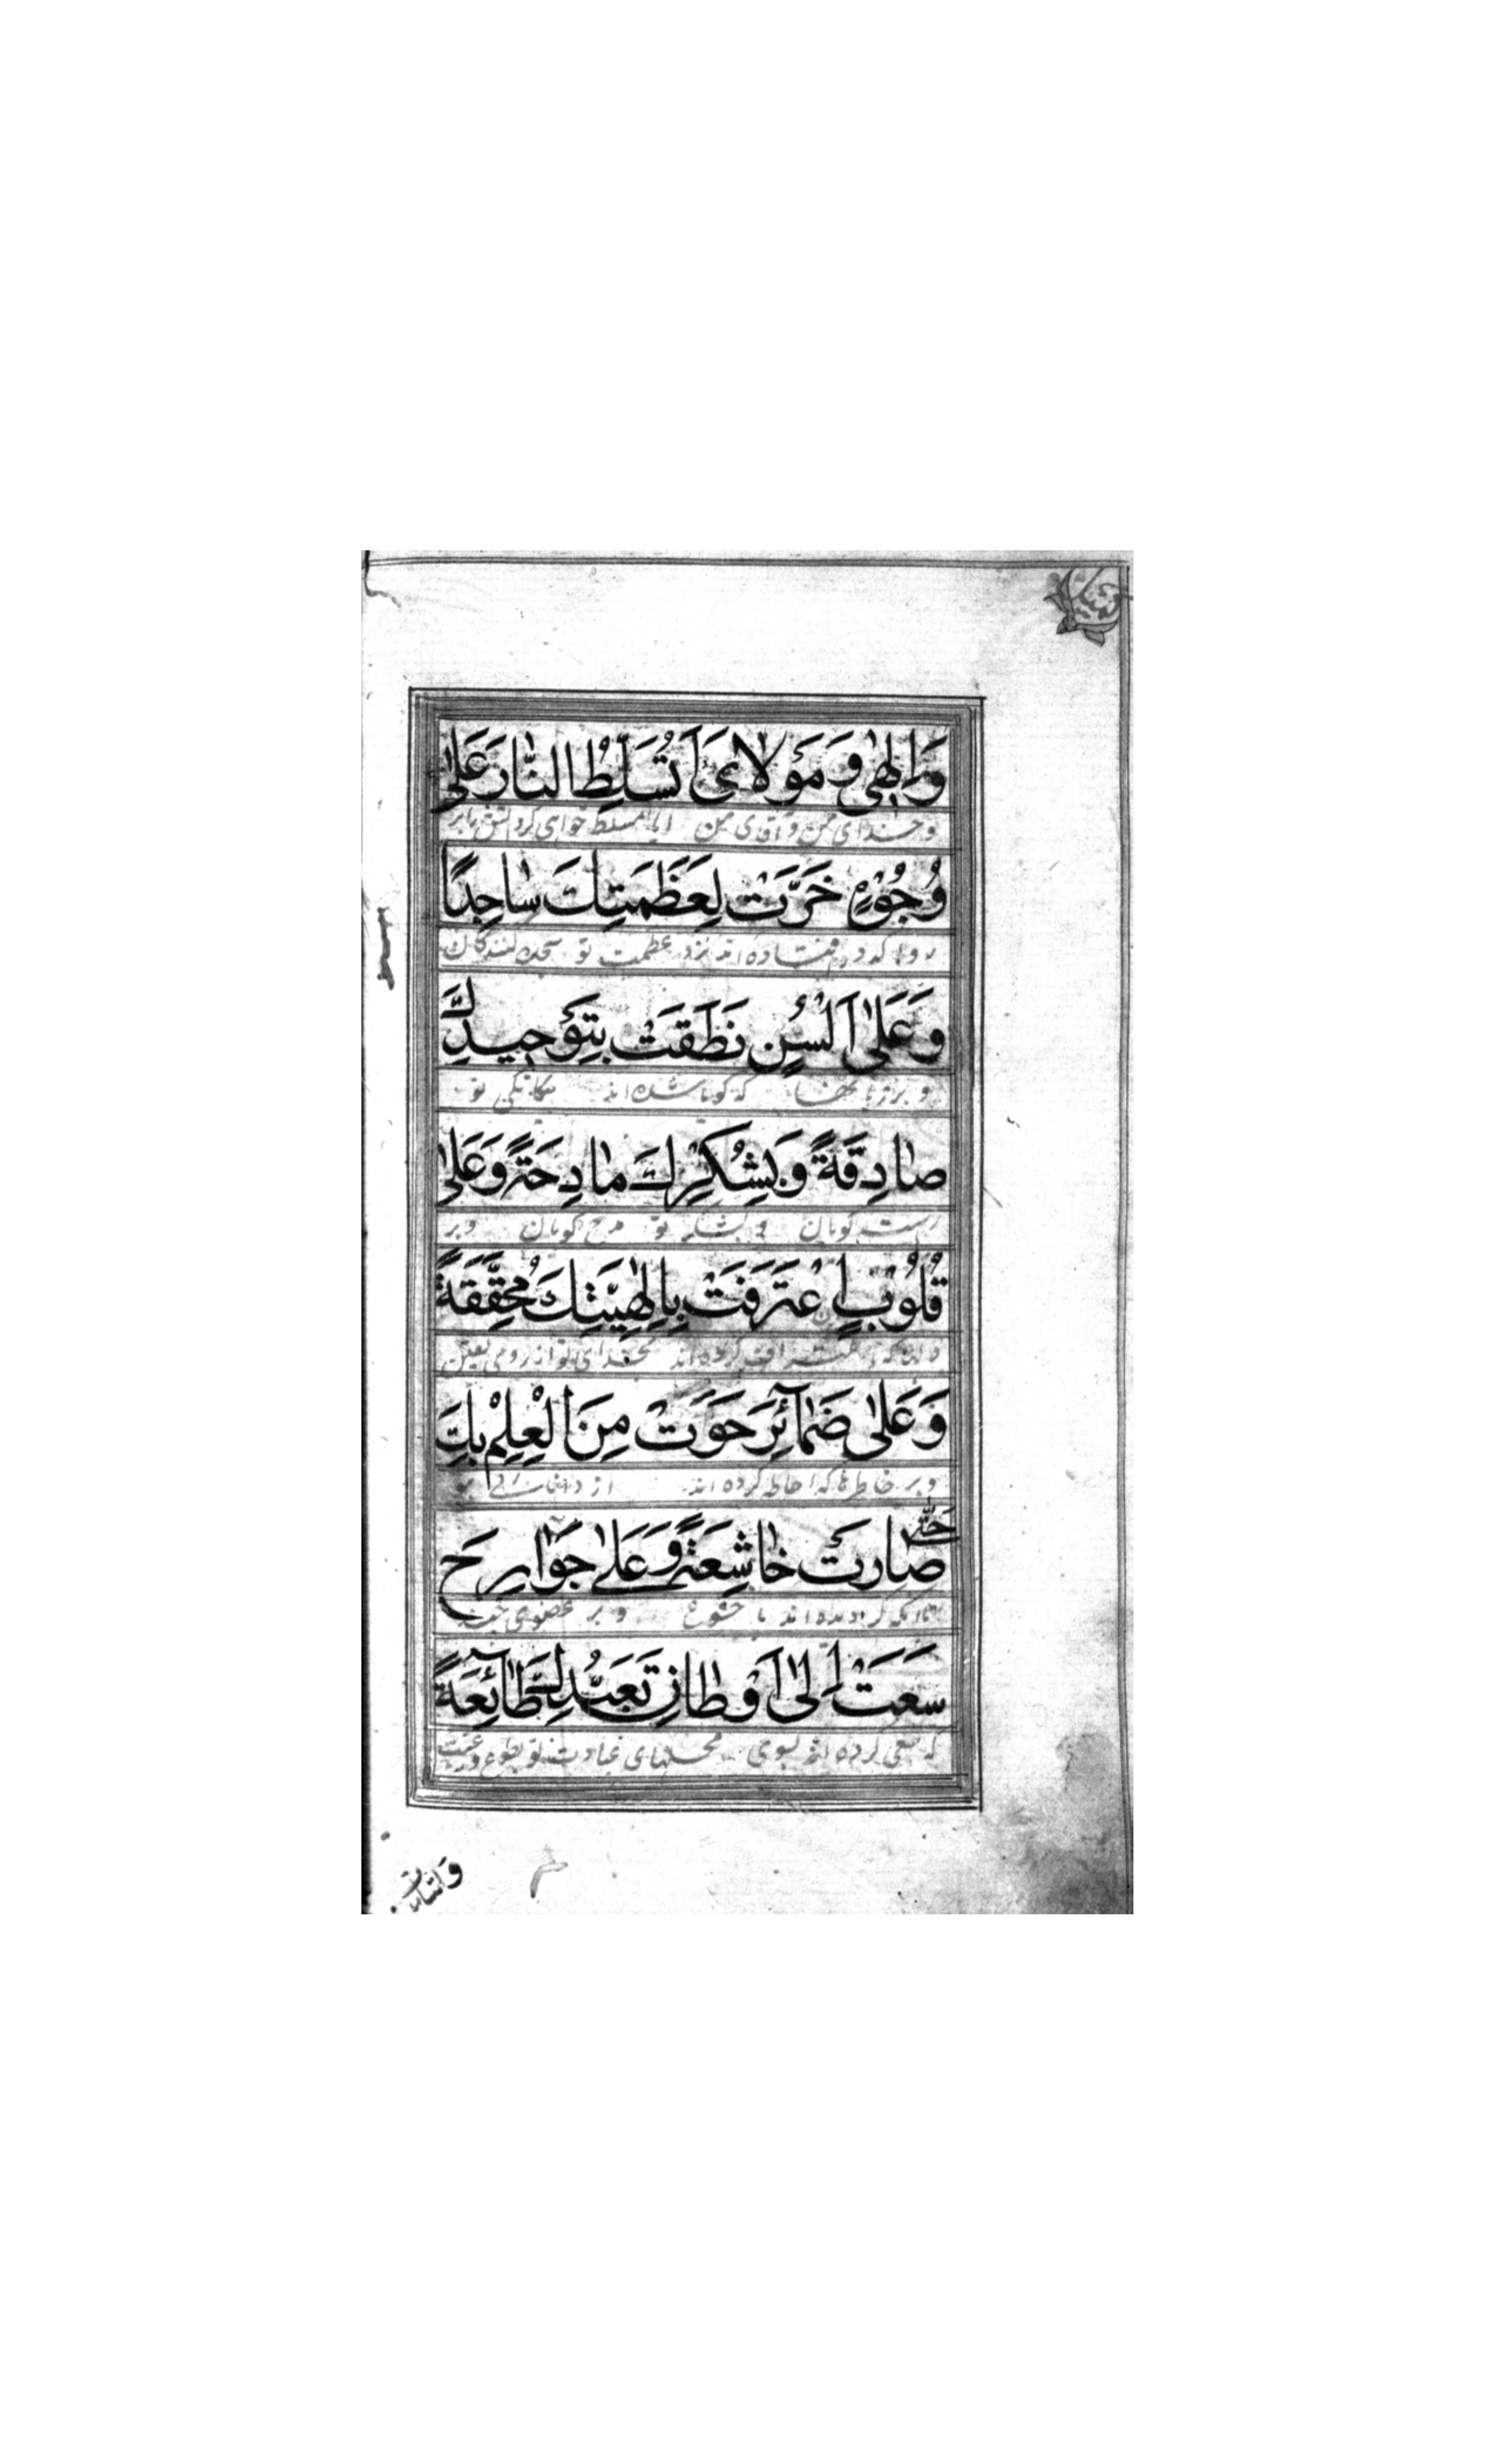 وَاِلٰهٖی وَ مَوْلاٰیَ اَتُسَلِّطُ النّٰارَ عَلٰی
و خدای من و آقای من ایا مسلط خواهی کرد اتش را بر
وُجُوْهٍ خَرَّتْ لِعَظَمَتِكَ سٰاجِدًا
که در افتاده اند نزد عظمت تو سجده کنندگان
وَ عَلٰی اَلْسُنٍ نَطَقَتْ بِتَوْحِیدِكَ
و بر زبانها که گویا شده اند بیگانگی تو
صٰادِقَةً وَ بِشُكْرِكَ مٰادِحَةً وَ عَلٰی
راست گویان و بشکر تو مدح گویان و بر
قُلُوْبٍ اِعْتَرَفَتْ بِاِلٰهِیَّتِكَ مُحَقِّقَةً
که اعتراف کرده اند بخدای تو از روی یقین
وَ عَلٰی ضَمٰآئِرَ حَوَتْ مِنَ الْعِلْمِ بِكَ
و بر خاطرها که احاطه کرده اند از دانائی بتو
حَتّٰی
صٰارَتْ خٰاشِعَةً وَ عَلٰی جَوٰارِحَ
تا انکه گردیده اند با خشوع و بر عضوی چند
سَعَتْ اِلٰی اَوْطٰانِ تَعَبُّدِكَ طٰآئِعَةً
که سعی کرده اند بسوی محلهای عبادت تو بطوع و رغبت
وَاَشٰارَتْ